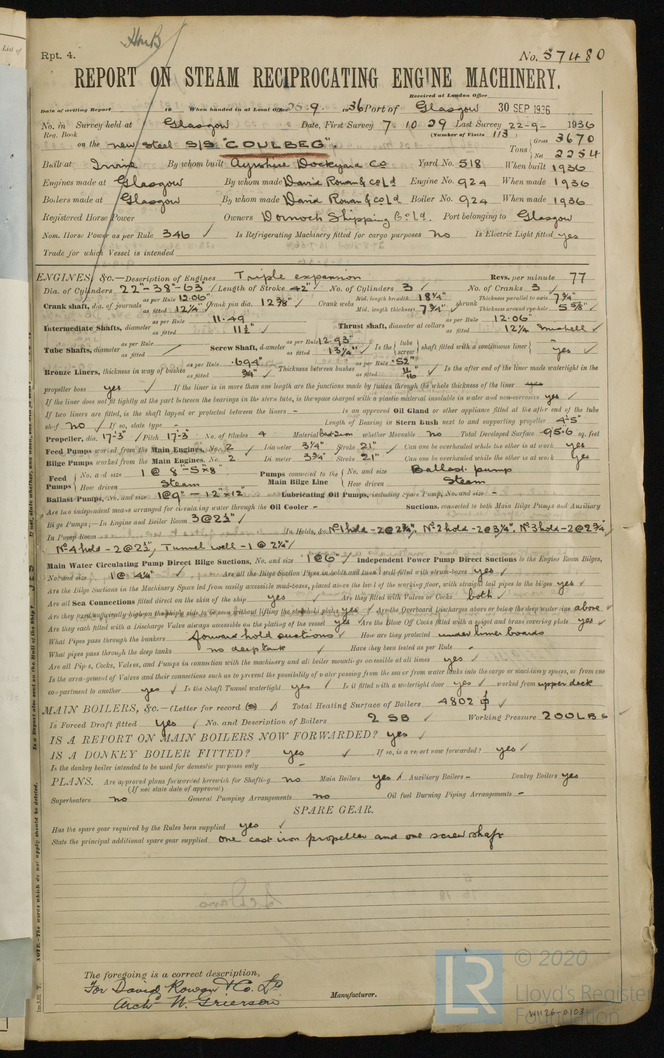 Rpt. 4.
No. 57480
REPORT ON STEAM RECIPROCATING ENGINE MACHINERY.
Received at London Office
Date of writing Report 19 When handed in at Local Office 9. 1936 Port of Glasgow 30 SEP 1936
No. in Survey held at Glasgow Date, First Survey 7.10.29 Last Survey 22-9- 1936
Reg. Book (Number of Visits 113)
on the new steel S/S "COULBEG" Tons Gross 3670 Net 2254
Built at Irvine By whom built Ayrshire Dockyard Co Yard No. 518 When built 1936
Engines made at Glasgow By whom made David Rowan & Co Ld Engine No. 924 When made 1936
Boilers made at Glasgow By whom made David Rowan & Co Ld Boiler No. 924 When made 1936
Registered Horse Power Owners Dornoch Shipping Co Ld. Port belonging to Glasgow
Nom. Horse Power as per Rule 346 Is Refrigerating Machinery fitted for cargo purposes No Is Electric Light fitted yes
Trade for which Vessel is intended
ENGINES, &c.—Description of Engines Triple expansion Revs. per minute 77
Dia. of Cylinders 22"-38"-63" Length of Stroke 42" No. of Cylinders 3 No. of Cranks 3
Crank shaft, dia. of journals as per Rule 12.06" as fitted 12¼" Crank pin dia. 12⅜" Crank webs Mid. length breadth 18¼" Mid. length thickness 7¾" shrunk Thickness parallel to axis 7¾" Thickness around eye-hole 5⅝"
Intermediate Shafts, diameter as per Rule 11.49 as fitted 11½" Thrust shaft, diameter at collars as per Rule 12.06" as fitted 12¼ Michell
Tube Shafts, diameter as per Rule as fitted Screw Shaft, diameter as per Rule 12.93" as fitted 13¼" Is the tube screw shaft fitted with a continuous liner yes
Bronze Liners, thickness in way of bushes as per Rule .694" as fitted ¾" Thickness between bushes as per Rule .52" as fitted 11/16 Is the after end of the liner made watertight in the
propeller boss yes If the liner is in more than one length are the junctions made by fusion through the whole thickness of the liner
If the liner does not fit tightly at the part between the bearings in the stern tube, is the space charged with a plastic material insoluble in water and non-corrosive yes
If two liners are fitted, is the shaft lapped or protected between the liners - Is an approved Oil Gland or other appliance fitted at the after end of the tube
shaft No If so, state type - Length of Bearing in Stern Bush next to and supporting propeller 4'-5"
Propeller, dia. 17'-3" Pitch 17'-3" No. of blades 4 Material whether Moveable No Total Developed Surface 95.6 sq. feet
Feed Pumps worked from the Main Engines, No. 2 Diameter 3¼" Stroke 21" Can one be overhauled while the other is at work yes
Bilge Pumps worked from the Main Engines, No. 2 Diameter 3¾" Stroke 21" Can one be overhauled while the other is at work yes
Feed Pumps No. and size 1 @ 8"-5"x8" How driven Steam Pumps connected to the Main Bilge Line No. and size Ballast pump How driven Steam
Ballast Pumps, No. and size 1@9"-12"x12" Lubricating Oil Pumps, including Spare Pump, No. and size -
Are two independent means arranged for circulating water through the Oil Cooler - Suctions, connected to both Main Bilge Pumps and Auxiliary
Bilge Pumps;—In Engine and Boiler Room 3@2½"
In Pump Room In Holds, &c. No1 hold-2@2¼", No2 hold-2@3¼", No3 hold-2@2¾"
No4 hold-2@2½, Tunnel well-1@2¼"
Main Water Circulating Pump Direct Bilge Suctions, No. and size 1@6" Independent Power Pump Direct Suctions to the Engine Room Bilges,
No. and size 1@4¼" Are all the Bilge Suction Pipes in holds and tunnel well fitted with strum-boxes yes
Are the Bilge Suctions in the Machinery Space led from easily accessible mud-boxes, placed above the level of the working floor, with straight tail pipes to the bilges yes
Are all Sea Connections fitted direct on the skin of the ship yes Are they fitted with Valves or Cocks both
Are they fixed sufficiently high on the ship's side to be seen without lifting the stokehold plates yes Are the Overboard Discharges above or below the deep water line above
Are they each fitted with a Discharge Valve always accessible on the plating of the vessel yes Are the Blow Off Cocks fitted with a spigot and brass covering plate yes
What Pipes pass through the bunkers forward hold suctions How are they protected under limber boards
What pipes pass through the deep tanks no deep tank Have they been tested as per Rule -
Are all Pipes, Cocks, Valves, and Pumps in connection with the machinery and all boiler mountings accessible at all times yes
Is the arrangement of Valves and their connections such as to prevent the possibility of water passing from the sea or from water tanks into the cargo or machinery spaces, or from one
compartment to another yes Is the Shaft Tunnel watertight yes Is it fitted with a watertight door yes worked from upper deck
MAIN BOILERS, &c.—(Letter for record (S)) Total Heating Surface of Boilers 4802
Is Forced Draft fitted yes No. and Description of Boilers 2 SB Working Pressure 200 Lbs
IS A REPORT ON MAIN BOILERS NOW FORWARDED? yes
IS A DONKEY BOILER FITTED? yes If so, is a report now forwarded? yes
Is the donkey boiler intended to be used for domestic purposes only -
PLANS. Are approved plans forwarded herewith for Shafting no Main Boilers yes Auxiliary Boilers - Donkey Boilers yes
(If not state date of approval)
Superheaters no General Pumping Arrangements no Oil fuel Burning Piping Arrangements -
SPARE GEAR.
Has the spare gear required by the Rules been supplied yes
State the principal additional spare gear supplied one cast iron propeller and one screw shaft
The foregoing is a correct description,
For David Rowan & Co. Ld
Archd W. Grierson
Manufacturer.
© 2020
LR
Lloyd's Register
Foundation
W1126-0103